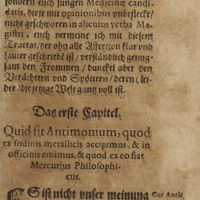 sondern euch jungen Medicinæ candi-
datis, die jr mit opinionibus unbefleckt/
nicht geschworen in alicuius verba Ma-
gistri, euch vermeine ich mit diesem
Tractat/der ohn alle Affecten klar und
lauter geschrieben ist/verständlich genug-
sam den Frommen/dunckel aber den
Verächtern und Spöttern/deren/lei-
der/die jetzige Welt gantz voll ist.
Das erste Capitel.
Quid sit Antimonium, quod
ex fodinis metallicis accipimus, & in
officinis emimus, & quod ex eo fiat
Mercurius Philosophi-
cus.
ES ist nicht unser meinung